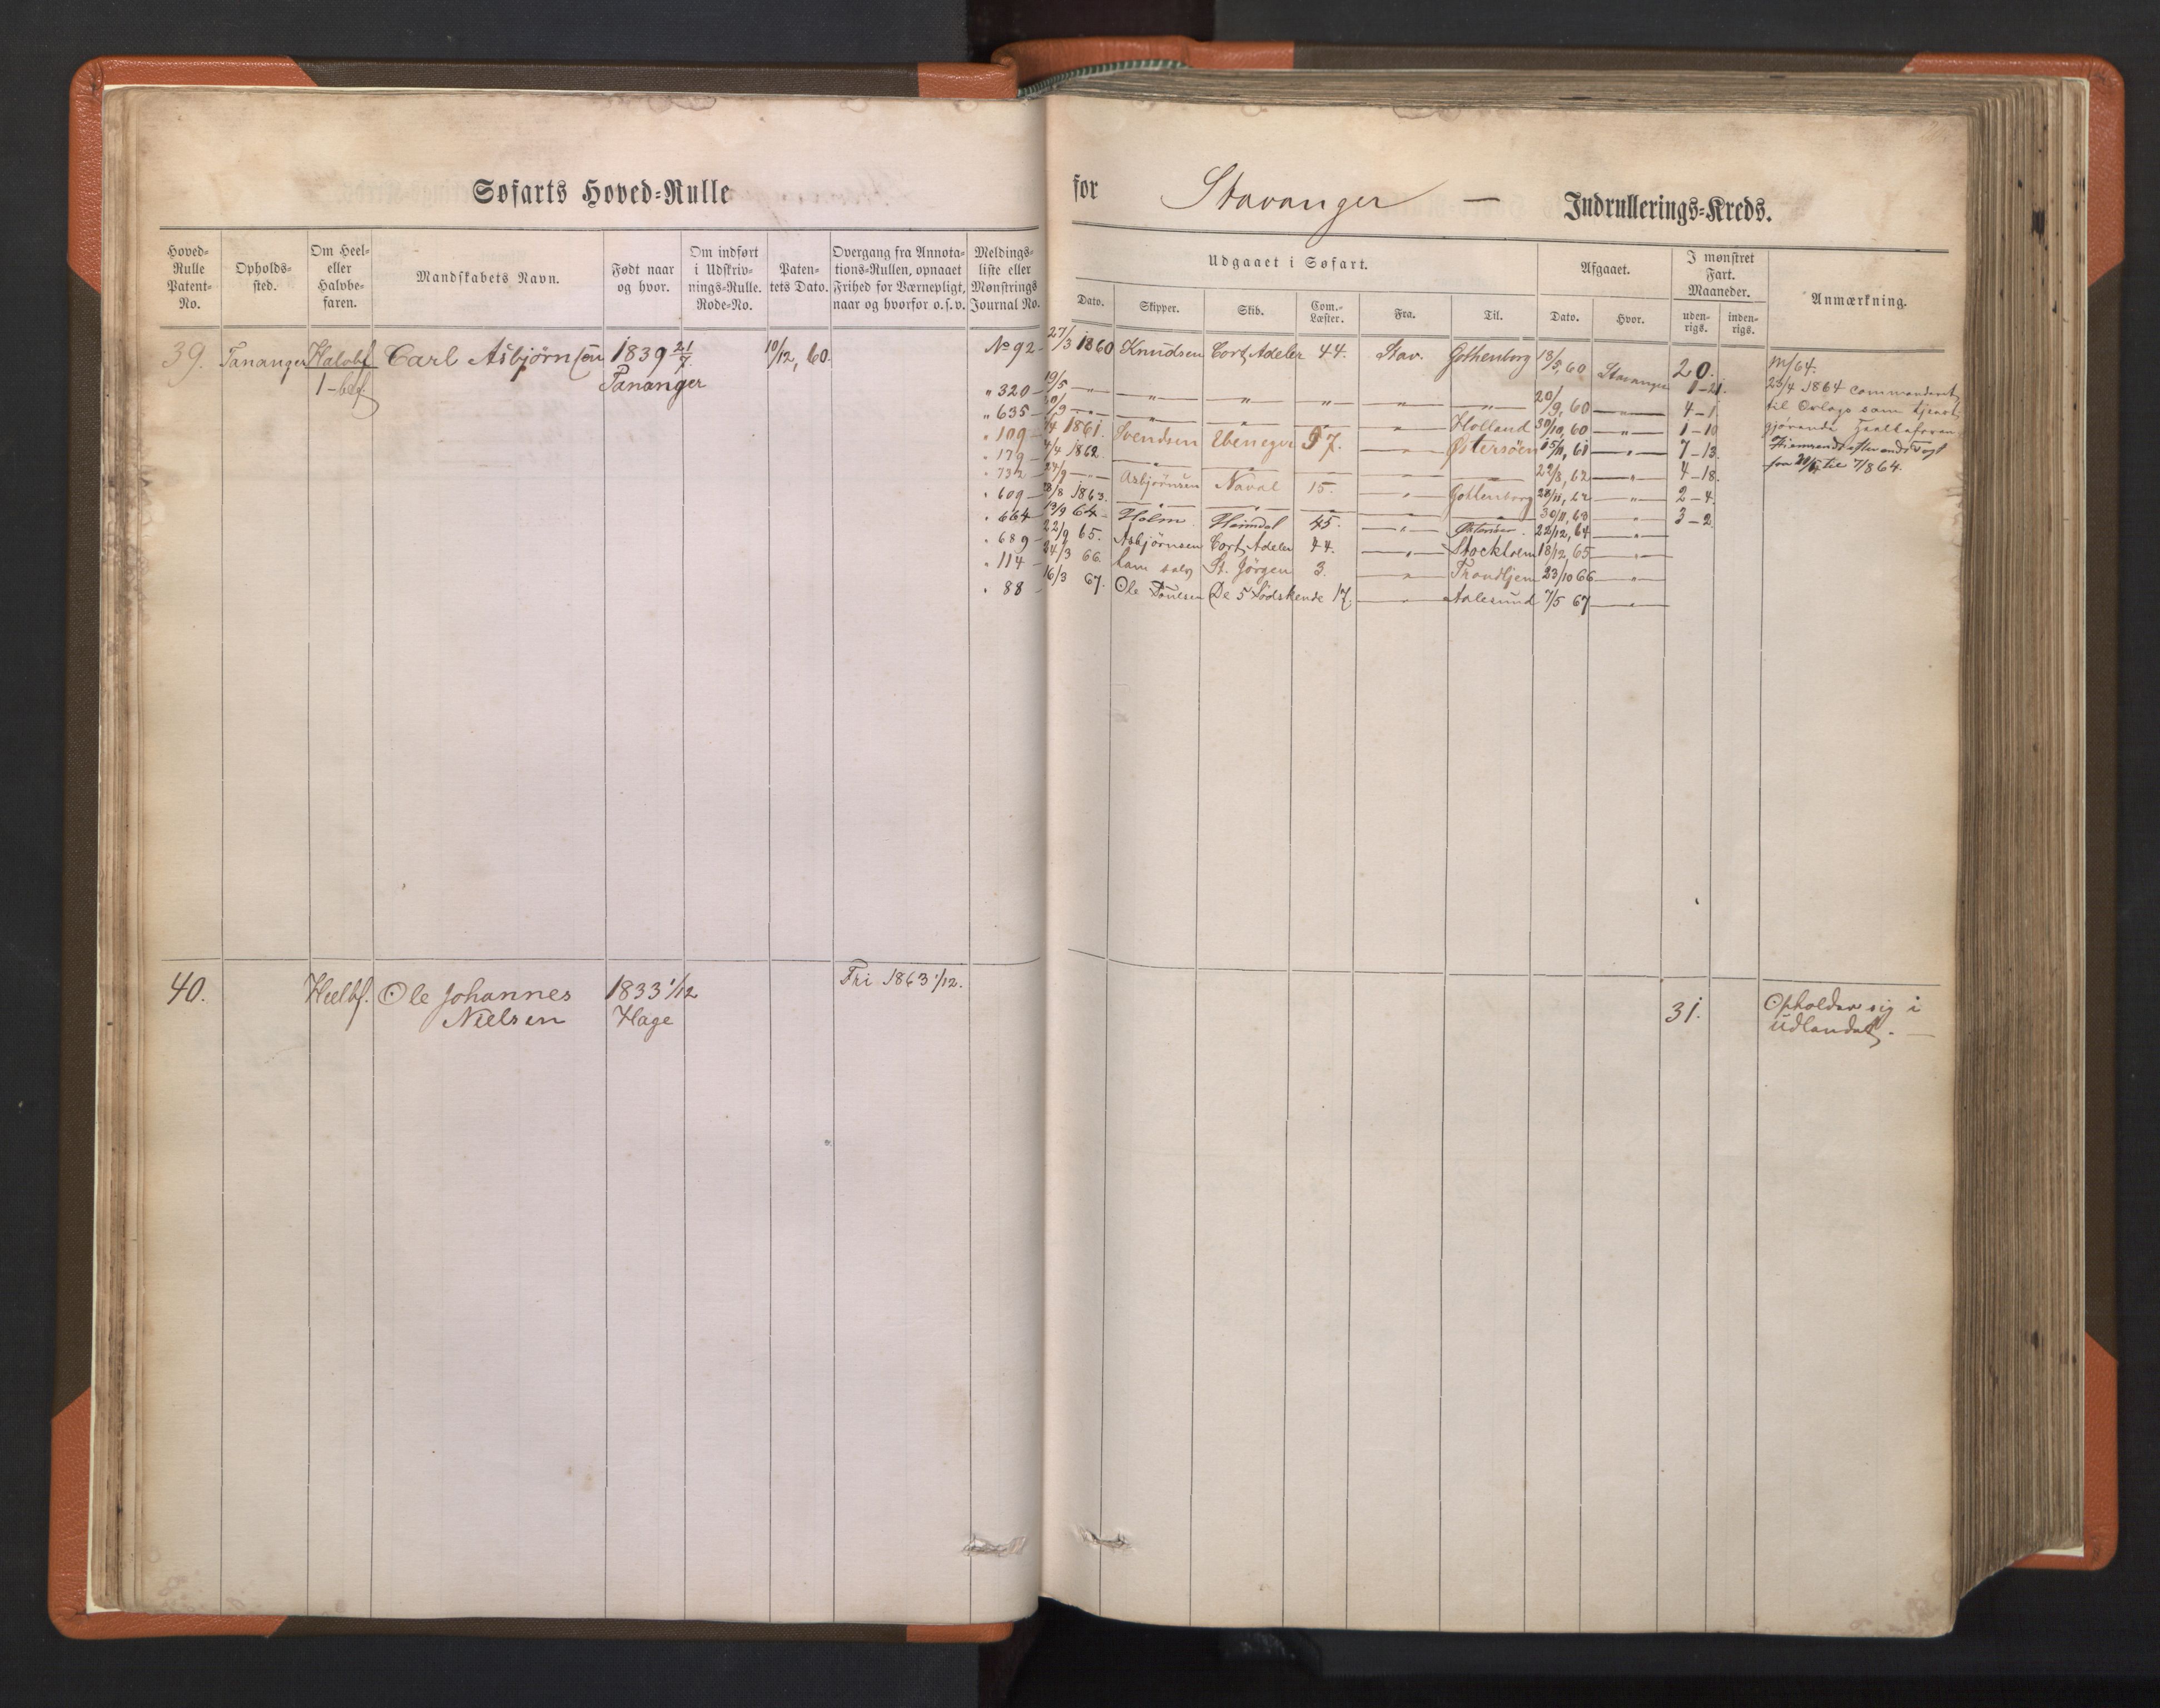 Søfarts Hoved-Rulle
for Stavanger — Indrullerings-Kreds.
Hoved-Rulle Patent-No.
Opholds-sted.
Om Heel- eller Halvbe-faren.
Mandskabets Navn.
Født naar og hvor.
Om indført i Udskriv-nings-Rulle. Rode-No.
Paten-tets Dato.
Overgang fra Annota-tions-Rullen, opnaaet Frihed for Værnepligt, naar og hvorfor o.s.v.
Meldings-liste eller Mønstrings Journal No.
Udgaaet i Søfart.
Dato. Skipper. Skib. Com.-Læster. Fra. Til.
Afgaaet.
Dato. Hvor.
I mønstret Fart. Maaneder.
uden-rigs. inden-rigs.
Anmærkning.
39. Tananger Halvbf Carl Asbjørnsen 1839 21/7 10/12, 60. No 92 27/3 1860 Knudsen Cort Adeler 44. Stav. Gothenborg 18/5, 60 Stavanger 20.
Tananger
" 320 19/5 — " — — " — — " — — " — — " — 20/9, 60 — " — 1-21.
" 635 — " — — " — — " — — " — Holland 30/10, 60 — " — 4-1
" 109 1861. Svendsen Ebeneger 57. — " — Østersøen 15/11, 61 — " — 1-10
" 179 4/4 1862. — " — — " — — " — 22/8, 62 — " — 7-13
" 732 Asbjørnsen Naval 15. — " — Gothenborg 28/11, 62 — " — 4-18.
" 609 1863. — " — — " — — " — 30/11, 63 — " — 2-4
" 664 13/9 64 Holm Heimdal 45. — " — 22/12, 64 — " — 3-2
" 689 22/9 65. Asbjørnsen Cort Adeler 44. — " — Stockholm 18/12, 65 — " —
" 114 24/3 66. St. Jörgen 3. — " — Trondhjem 23/10 66 — " —
" 88 16/3 67. Ole Poulsen De 5 Sødskende 17. — " — Aalesund 7/5 67 — " —
M/64.
1864 Commanderet
til Orlogs som tjenst
gjørende
til 7/8 64.
40. Heelbf. Ole Johannes 1833 1/12 Fri 1863 1/12. 31. Opholder sig i
Nielsen Hage Udlandet. —